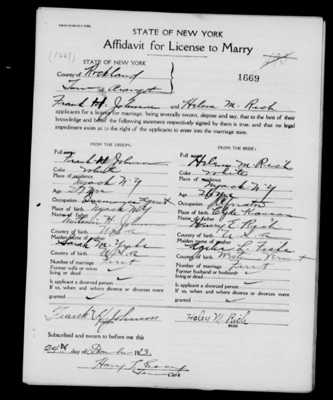 STATE OF NEW YORK
(1669)
STATE OF NEW YORK
Affidavit for License to Marry
County of Rockland
1669
Town
Frank H. Johnson and Helen M. Rich
applicants for a license for marriage, being severally sworn, depose and say, that to the best of their
knowledge and belief the following statement respectively signed by them is true, and that no legal
impediment exists as to the right of the applicants to enter into the marriage state.
FROM THE GROOM:
Full name Frank H. Johnson
Color white
Place of residence
Nyack N.Y
Age
Occupation
Place of birth Nyack N.Y
Name of father
William H. Johnson
Country of birth U S A
Maiden name of mother
Sarah M.
Country of birth U S A
Number of marriage First
Former wife or wives
living or dead
Is applicant a divorced person
If so, when and where divorce or divorces were
granted
FROM THE BRIDE:
Full name Helen M. Rich
Color white
Place of residence
Nyack N.Y
Age
Occupation
Place of birth Clyde Kansas
Name of father
Rich
Country of birth U S A
Maiden name of mother
L.
Country of birth
Number of marriage First
Former husband or husbands
living or dead
Is applicant a divorced person
If so, when and where divorce or divorces were
granted
Frank H Johnson
Helen M. Rich
BRIDE
Subscribed and sworn to before me this
day of
Clerk